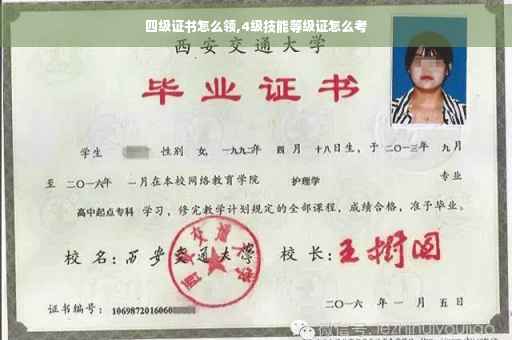 四级证书怎么领,4级技能等级证怎么考
西安交通大学
毕业证书
学生 性别 女, 一九九二年 四 月 十八日生, 于 二〇一三年 九月
至 二〇一六年 一月在本校网络教育学院 护理学 专业
高中起点专科 学习, 修完教学计划规定的全部课程, 成绩合格, 准予毕业。
校 名: 西安交通大学 校 长: 王树国
西安交通大学
证书编号: 1069872016060
二〇一六 年 一 月 五 日
微信号: jezhinuiyoujiao